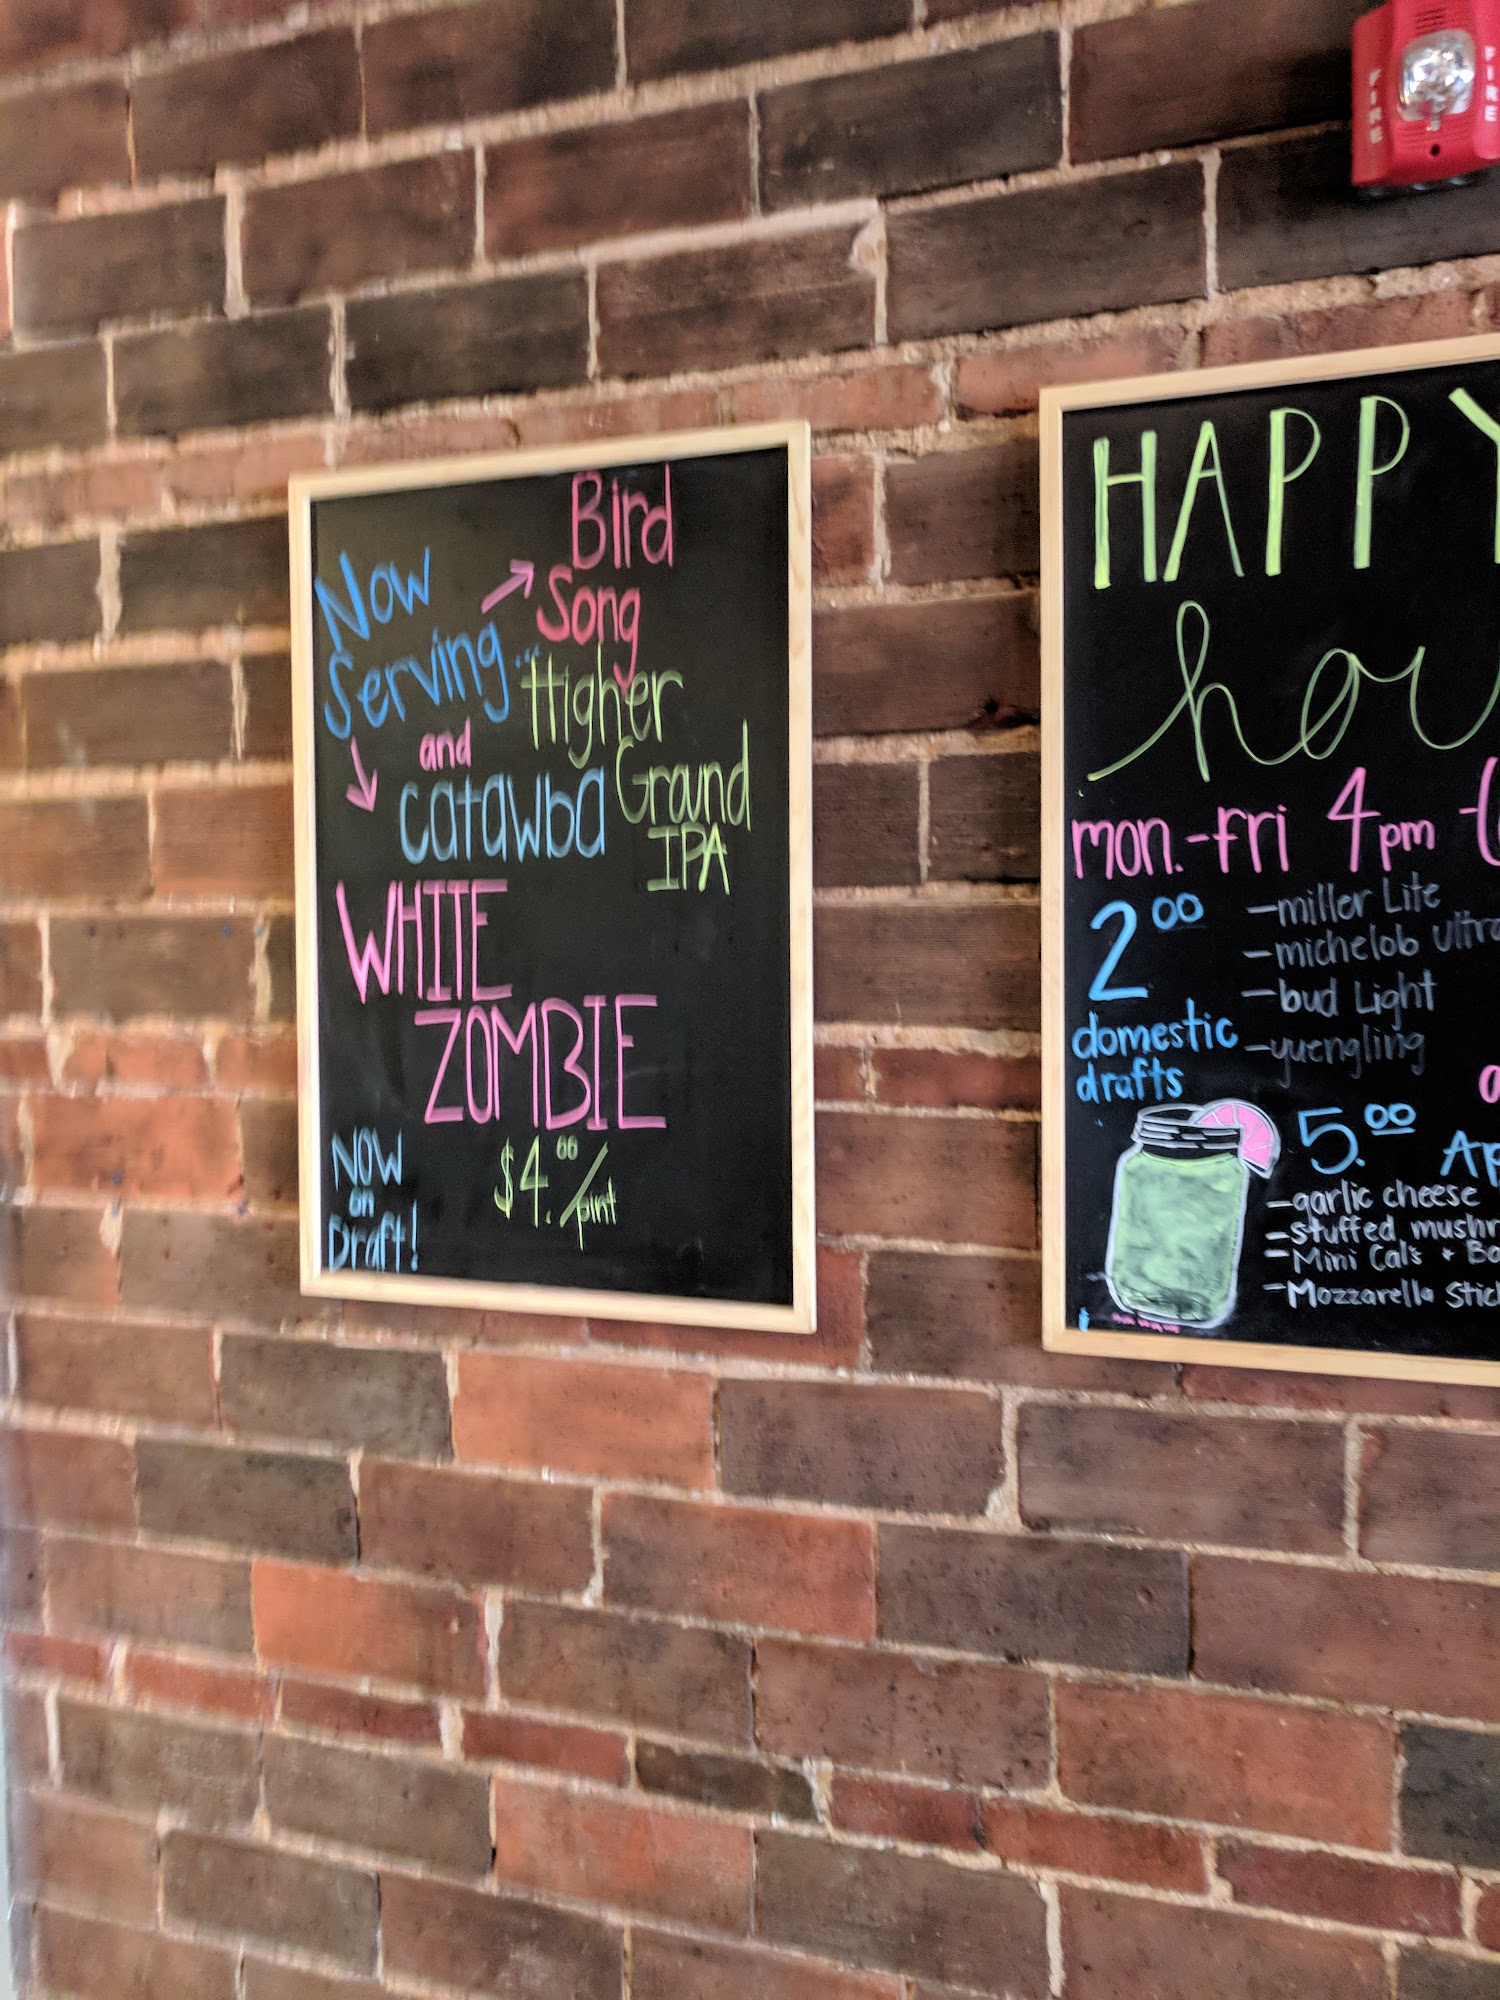 Bird
Song
Now
Serving...
Higher
Ground
IPA
and
catawba
WHITE
ZOMBIE
NOW
on
Draft!
$4.00/pint
HAPPY
hou
mon.-Fri 4pm
2 00
domestic
drafts
-miller Lite
-michelob ultra
-bud Light
-yuengling
5.00 Ap
-garlic cheese
-stuffed mushr
-Mini Cal's + Bo
-Mozzarella Stick
FIRE
FIRE